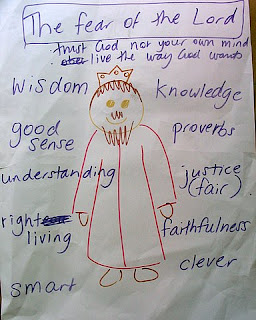 The fear of the Lord
trust God not your own mind
live the way God wants
wisdom knowledge
good sense proverbs
understanding justice (fair)
right living faithfulness
smart clever